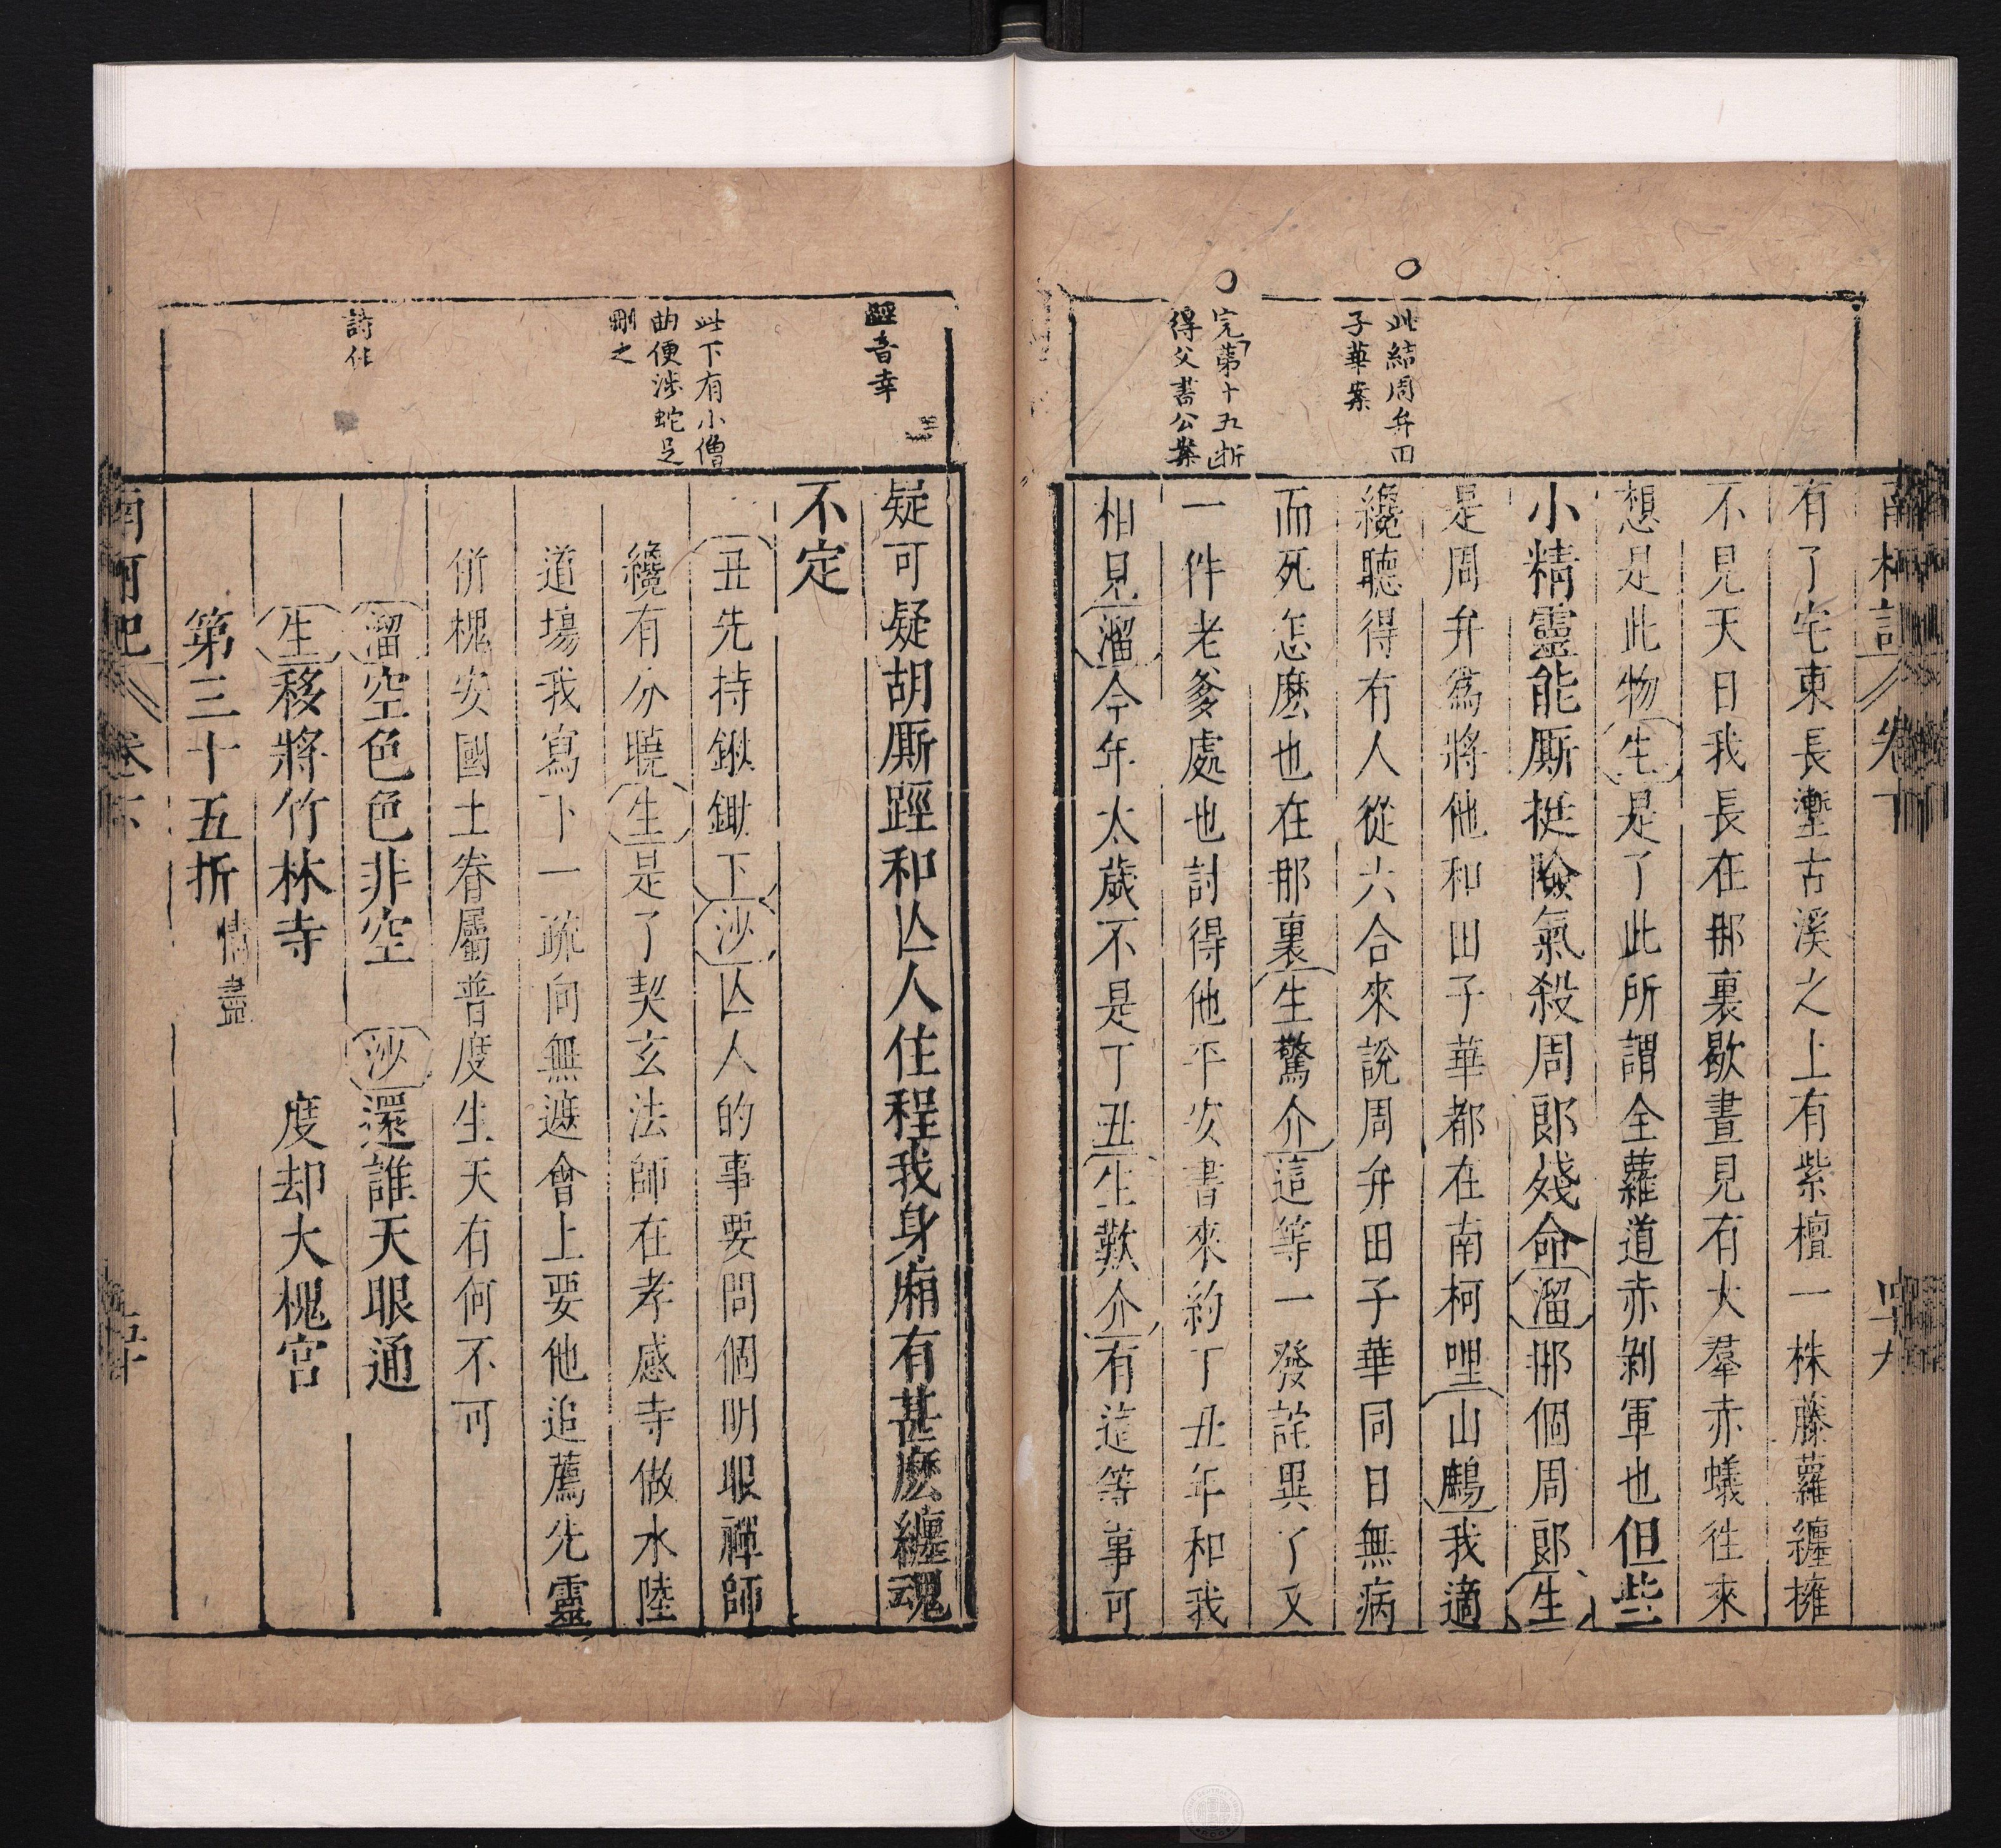 南柯記
卷下
四十九
此結周弁田
子華案
完第十五折
得父書公案
有了宅東長壍古溪之上有紫檀一株藤蘿纏擁
不見天日我長在那裏歇晝見有大羣赤蟻往來
想是此物生是了此所謂全蘿道赤剝軍也但些
小精靈能厮挺險氣殺周郎殘命溜那個周郎生
是周弁爲將他和田子華都在南柯哩山鷓我適
纔聽得有人從六合來說周弁田子華同日無病
而死怎麽也在那裏生驚介這等一發詫異了又
一件老爹處也討得他平安書來約丁丑年和我
相見溜今年太歲不是丁丑生歎介有這等事可
脛音幸
此下有小僧
曲便涉蛇足
刪之
詩佳
疑可疑胡厮踁和亾人住程我身廂有甚麽纏魂
不定
丑先持鍬鋤下沙亾人的事要問個明眼禪師
纔有分曉生是了契玄法師在孝感寺做水陸
道場我寫下一疏向無遮會上要他追薦先靈
併槐安國土眷屬普度生天有何不可
溜空色色非空 沙還誰天眼通
生移將竹林寺 度却大槐宮
第三十五折 情盡
南柯記
卷下
五十